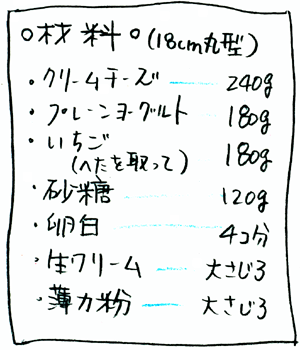 ○材料○(18cm丸型)
・クリームチーズ — 240g
・プレーンヨーグルト 180g
・いちご
(へたを取って) 180g
・砂糖 — 120g
・卵白 — 4コ分
・生クリーム — 大さじ3
・薄力粉 — 大さじ3